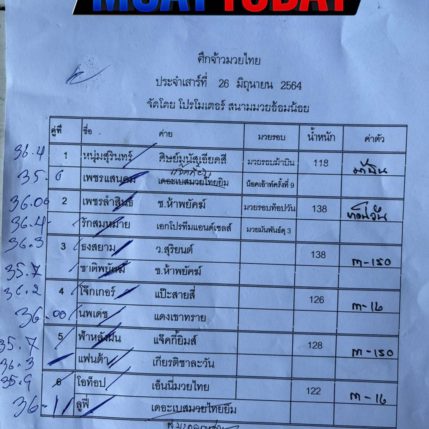 MUAY TODAY
ศึกจ้าวมวยไทย
ประจำเสาร์ที่ 26 มิถุนายน 2564
จัดโดย โปรโมเตอร์ สนามมวยอ้อมน้อย
คู่ที่ ชื่อ ค่าย มวยรอบ น้ำหนัก ค่าตัว
36.4 1 หนุ่มสุรินทร์ ศิษย์มนัสเอียดสี มวยรอบผ้าปิน 118
35.6 เพชรแสนคม เดอะเบสมวยไทยยิม น็อคเอ้าท์ครั้งที่ 9
36.00 2 เพชรลำสิงห์ ช.ห้าพยัคฆ์ มวยรอบท้อปวัน 138 ท็อปวัน
36.4 รักสมหมาย เอกโปรทีมแอนด์เซลส์ มวยมันพันธุ์ดุ 3
36.3 3 ธงสยาม ว.สุริยนต์ 138 m-150
35.7 ชาติพยัคฆ์ ช.ห้าพยัคฆ์
36.2 4 โจ๊กเกอร์ แป๊ะสายสี่ 126 m-16
36.00 นพเดช แดงเขาทราย
35.7 5 ฟ้าหลังฝน แจ็คกี้ยิมส์ 128 m-150
36.3 แฟนต้า เกียรติชาละวัน
35.9 6 โอท็อป เอ็นนี่มวยไทย 122 m-16
36-1 ลูฟี่ เดอะเบสมวยไทยยิม